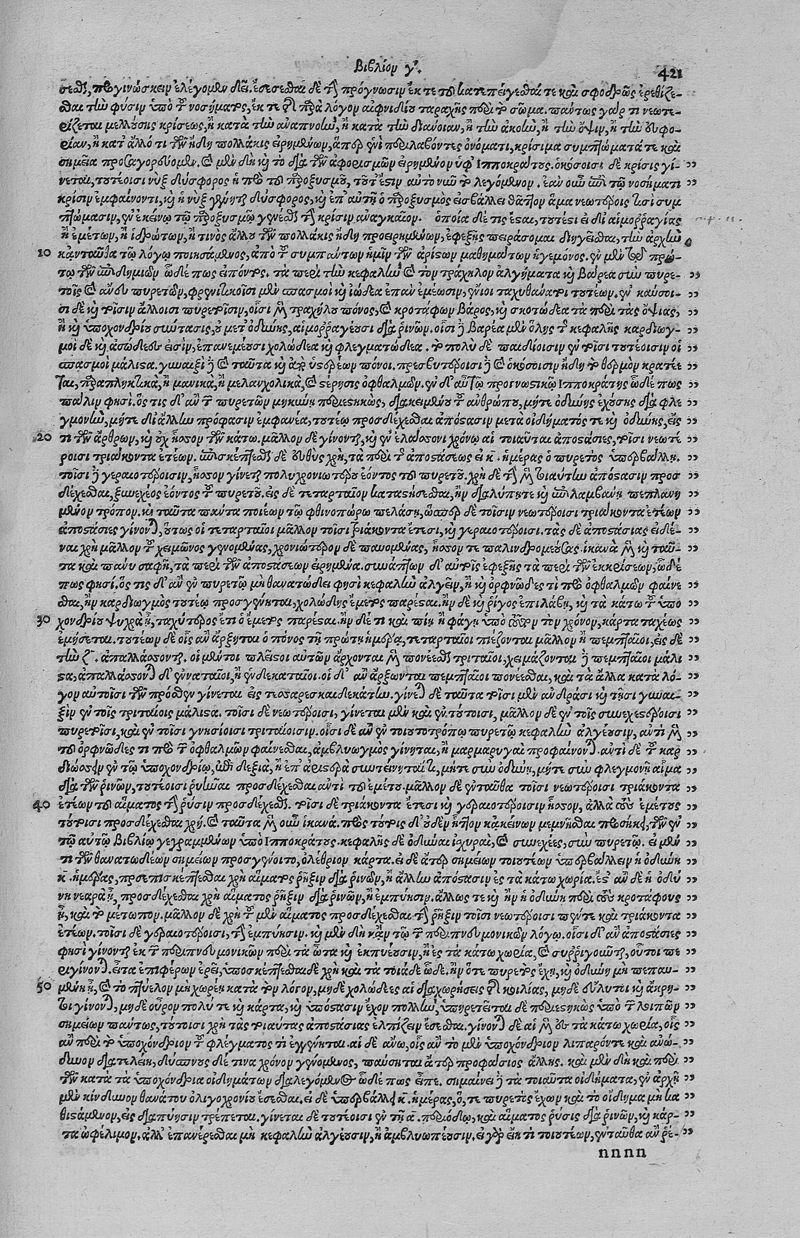 Βιβλίον γ. 421
σεσθ, προγινώσκειν ἐλέγομεν δεῖ. ἔσεσθαι δὲ τὴν πρόγνωσιν ἔκ τε τοῦ κατεπείγεσθαί τε καὶ σφοδρῶς ἐρεθίζε-
σθαι τὴν φύσιν ὑπὸ τοῦ νοσήματος, ἔκ τε τῆς παρὰ λόγον αἰφνιδίου ταραχῆς περὶ τὸ σῶμα. πάντως γάρ τι νεωτε-
ρίζεται μελλούσης κρίσεως, ἢ κατὰ τὴν ἀναπνοὴν, ἢ κατὰ τὴν διάνοιαν, ἢ τὴν ἀκοὴν, ἢ τὴν ὄψιν, ἢ τὴν δυσφο-
ρίαν, ἢ κατ' ἄλλό τι τῶν ἤδη πολλάκις εἰρημένων, ἅπερ ἑνὶ περιλαβόντες ὀνόματι, κρίσιμα συμπτώματά τε καὶ
σημεῖα προσαγορεύομεν. καὶ μὲν δὴ καὶ τὸ διὰ τῶν ἀφορισμῶν εἰρημένον ὑφ' Ἱπποκράτους. ὁκόσοισι δὲ κρίσις γί-
νεται, τουτέοισι νὺξ δύσφορος ἡ πρὸ τοῦ παροξυσμοῦ, τουτέστιν αὐτὸ νῦν τὸ λεγόμενον. ἐὰν οὖν ἐπὶ τῷ νοσήματι
κρίσιν ἐμφαίνοντι, καὶ ἡ νὺξ γένηται δύσφορος, καὶ ἐπ' αὐτῇ ὁ παροξυσμὸς εἰσβάλλει θᾶττον ἅμα νεωτέροις τισὶ συμ
πτώμασιν, ἐν ἐκείνῳ τῷ παροξυσμῷ γενέσθαι τὴν κρίσιν ἀναγκαῖον. ὁποία δέ τις ἔσται, τουτέστι εἰ δι' αἱμορραγίας
ἢ ἐμέτων, ἢ ἱδρώτων, ἤ τινος ἄλλου τῶν πολλάκις ἤδη προειρημένων, ἐφεξῆς πειράσομαι διηγεῖσθαι, τὴν ἀρχὴν
10 κἀνταῦθα τῷ λόγῳ ποιησάμενος, ἀπὸ τοῦ συμπάντων ἡμῖν τῶν ἀρίστων μαθημάτων ἡγεμόνος. ἐν μὲν δὴ πρώ-
τῳ τῶν ἐπιδημιῶν ὧδέ πως εἰπόντος. τὰ περὶ τὴν κεφαλὴν καὶ τὸν τράχηλον ἀλγήματα καὶ βάρεα σὺν πυρε-
τοῖς καὶ ἄνευ πυρετῶν, φρενιτικοῖσι μὲν σπασμοὶ καὶ ἰώδεα ἐπανεμέωσιν, ἔνιοι ταχυθάνατοι τουτέων, ἐν καύσοι-
σι δὲ καὶ τοῖσιν ἄλλοισι πυρετοῖσιν, οἷσι μὲν τραχήλου πόνος, καὶ κροτάφων βάρος, καὶ σκοτώδεα τὰ περὶ τὰς ὄψιας,
ἢ καὶ ὑποχονδρίου σύντασις, οὐ μετ' ὀδύνης, αἱμορραγέουσι διὰ ῥινῶν. οἷσι δὲ βάρεα μὲν ὅλης τῆς κεφαλῆς καρδιωγ-
μοὶ δὲ καὶ ἀσώδεές εἰσιν, ἐπανεμέουσι χολώδεα καὶ φλεγματώδεα. τὸ πολὺ δὲ παιδίοισιν ἐν τοῖσι τουτέοισιν οἱ
σπασμοὶ μάλιστα. γυναιξὶ δὲ καὶ ταῦτα καὶ ἀπὸ ὑστέρων πόνοι. πρεσβυτέροισι δὲ καὶ ὁκόσοισιν ἤδη τὸ θερμὸν κρατέε
ται, παραπληκτικὰ, ἢ μανικὰ, ἢ μελαγχολικὰ, καὶ στέρησις ὀφθαλμῶν. ἐν δὲ αὐτῷ προγνωστικῷ Ἱπποκράτης ὧδέ πως
πάλιν φησί. ὅς τις δ' ἂν τῶν πυρετῶν μηκύνῃ περιεστηκὼς, διακειμένου τοῦ ἀνθρώπου, μήτε ὀδύνης ἐχούσης διὰ φλε
γμονὴν, μήτε δι' ἄλλην πρόφασιν ἐμφανέα, τουτέῳ προσδέχεσθαι ἀπόστασιν μετὰ οἰδήματός τε καὶ ὀδύνης, εἴς
20 τι τῶν ἄρθρων, καὶ οὐχ ἧσσον τῶν κάτω. μᾶλλον δὲ γίνονται, καὶ ἐν ἐλάσσονι χρόνῳ αἱ τοιαῦται ἀποστάσιες, τοῖσι νεωτέ
ροισι τριάκοντα ἐτέων. ἐπισκέπτεσθαι δὲ εὐθὺς χρὴ, τὰ περὶ τῆς ἀποστάσεως εἰ κ. ἡμέρας ὁ πυρετὸς ὑπερβάλλῃ.
τοῖσι δὲ γεραιοτέροισιν, ἧσσον γίνεται πολυχρονιωτέρου ἐόντος τοῦ πυρετοῦ. χρὴ δὲ τὴν μὲν τοιαύτην ἀπόστασιν προσ
δέχεσθαι, ξυνεχέος ἐόντος τοῦ πυρετοῦ. εἰς δὲ τεταρταῖον καταστήσεσθαι, ἢν διαλείπῃ τε καὶ ἐπιλαμβάνῃ πεπλανη
μένον τρόπον. καὶ ταῦτα πάντα ποιέων τῷ φθινοπώρῳ πελάσῃ, ὥσπερ δὲ τοῖσιν νεωτέροισι τριάκοντα ἐτέων
ἀποστάσιες γίνονται, οὕτως οἱ τεταρταῖοι μᾶλλον τοῖσι τριάκοντα ἔτεσι, καὶ γεραιοτέροισι. τὰς δὲ ἀποστάσιας εἰδέ-
ναι χρὴ μᾶλλον τοῦ χειμῶνος γενομένας, χρονιώτερον δὲ παυομένας, ἧσσόν τε παλινδρομεούσας. ἱκανὰ μὲν καὶ ταῦ-
τα καὶ πάνυ σαφῆ, τὰ περὶ τῶν ἀποστάσεων εἰρημένα. συνάπτων δ' αὐτοῖς ἐφεξῆς τὰ περὶ τῶν ἐκκρίσεων, ὧδέ
πως φησί. ὅς τις δ' ἂν ἐν πυρετῷ μὴ θανατώδει φησὶ κεφαλὴν ἀλγεῖν, ἢ καὶ ὀρφνῶδές τι πρὸ τῶν ὀφθαλμῶν φαίνε
σθαι, ἢν καρδιωγμὸς τουτέῳ προσγένηται, χολώδης ἔμετος παρέσται. ἢν δὲ καὶ ῥῖγος ἐπιλάβῃ, καὶ τὰ κάτω τοῦ ὑπο
30 χονδρίου ψυχρὰ ᾖ, ταχύτερος ἔτι ὁ ἔμετος παρέσται. ἢν δέ τι καὶ πίῃ ἢ φάγῃ ὑπὸ τοῦτον τὸν χρόνον, κάρτα ταχέως
ἐμήσεται. τουτέων δὲ οἷς ἂν ἄρξηται ὁ πόνος τῇ πρώτῃ ἡμέρᾳ, τεταρταῖοι πιέζονται μᾶλλον ἢ πεμπταῖοι, εἰς δὲ
τὴν ζ. ἀπαλλάσσονται. οἱ μέντοι πλεῖστοι αὐτῶν ἄρχονται μὲν πονέεσθαι τριταῖοι, χειμάζονται δὲ πεμπταῖοι μάλι
στα, ἀπαλλάσσονται δὲ ἐναταῖοι, ἢ ἑνδεκαταῖοι. οἳ δ' ἂν ἄρξωνται πεμπταῖοι πονέεσθαι, καὶ τὰ ἄλλα κατὰ λό-
γον αὐτοῖσι τῶν πρόσθεν γίνεται εἰς τεσσαρεσκαιδεκάτην. γίνεται δὲ ταῦτα τοῖσι μὲν ἀνδράσι καὶ τῇσι γυναι-
ξὶν ἐν τοῖς τριταίοις μάλιστα. τοῖσι δὲ νεωτέροισι, γίνεται μὲν καὶ ἐν τούτοισι, μᾶλλον δὲ ἐν τοῖς συνεχεστέροισι
πυρετοῖσι, καὶ ἐν τοῖς γνησίοισι τριταίοισιν. οἷσι δὲ ἂν ἐν τοιουτοτρόπῳ πυρετῷ κεφαλὴν ἀλγέουσιν, ἀντὶ μὲν
τοῦ ὀρφνῶδές τι πρὸ τῶν ὀφθαλμῶν φαίνεσθαι, ἀμβλυωγμὸς γίνηται, ἢ μαρμαρυγαὶ προφαίνονται. ἀντὶ δὲ τοῦ καρ
διώσσειν ἐν τῷ ὑποχονδρίῳ, ἐπὶ δεξιὰ, ἢ ἐπ' ἀριστερὰ συντείνηταί τι, μήτε σὺν ὀδύνῃ, μήτε σὺν φλεγμονῇ αἷμα
διὰ τῶν ῥινῶν, τουτέοισι ῥυῆναι προσδέχεσθαι ἀντὶ τοῦ ἐμέτου. μᾶλλον δὲ ἐνταῦθα τοῖσι νεωτέροισι τριάκοντα
40 ἐτέων τοῦ αἵματος τὴν ῥύσιν προσδέχεσθαι. τοῖσι δὲ τριάκοντα ἔτεσι καὶ γεραιοτέροισιν ἧσσον, ἀλλὰ τοὺς ἐμέτους
τούτοισι προσδέχεσθαι χρή. καὶ ταῦτα μὲν οὖν ἱκανά. πρὸς τούτοις δ' οὐδὲν ἧττον κἀκείνων μεμνῆσθαι προσήκει, τῶν ἐν
τῷ αὐτῷ βιβλίῳ γεγραμμένων ὑπὸ Ἱπποκράτους. κεφαλῆς δὲ ὀδύναι ἰσχυραὶ, καὶ συνεχέες, σὺν πυρετῷ. εἰ μέν
τι τῶν θανατωδέων σημείων προσγένοιτο, ὀλέθριον κάρτα. εἰ δὲ ἄτερ σημείων τοιουτέων ὑπερβάλλειν ἡ ὀδύνη
κ. ἡμέρας, προσεπισκέπτεσθαι χρὴ αἵματος ῥῆξιν διὰ ῥινῶν, ἢ ἄλλην ἀπόστασιν ἐς τὰ κάτω χωρία. ἔστ' ἂν δὲ ἡ ὀδύ
νη νεαρὰ ᾖ, προσδέχεσθαι χρὴ αἵματος ῥῆξιν διὰ ῥινῶν, ἢ ἐμπύησιν. ἄλλως τε καὶ ἢν ἡ ὀδύνη περὶ τοὺς κροτάφους
ᾖ, καὶ τὸ μέτωπον. μᾶλλον δὲ χρὴ τοῦ μὲν αἵματος προσδέχεσθαι τὴν ῥῆξιν τοῖσι νεωτέροισι πέντε καὶ τριάκοντα
ἐτέων. τοῖσι δὲ γεραιοτέροισι, τὴν ἐμπύησιν. καὶ μὲν δὴ κἀν τῷ περὶ πνευμονικῶν λόγῳ. οἷσι δ' ἂν ἀποστάσιες
φησὶ γίνονται ἐκ τῶν περιπνευμονικῶν περὶ τὰ ὦτα καὶ ἐκπνέωσιν, ἢ ἐς τὰ κάτω χωρία, καὶ συρριγγοῦνται, οὗτοι πε
ριγίνονται. εἶτα ἐπιφέρων ἐρεῖ, ὑποσκέπτεσθαι δὲ χρὴ καὶ τὰ τοιάδε ὧδε. ἢν ὅ τε πυρετὸς ἔχῃ, καὶ ὀδύνη μὴ πεπαυ-
50 μένη ᾖ, καὶ τὸ πτύελον μὴ χωρῇ κατὰ τὸν λόγον, μηδὲ χολώδεες αἱ διαχωρήσεις τῆς κοιλίας, μηδὲ εὔλυτοι καὶ ἄκρη-
τοι γίνονται, μηδὲ οὖρον πολύ τε καὶ κάρτα, καὶ ὑπόστασιν ἔχον πολλὴν, ὑπηρετεῖται δὲ περιεστηκὼς ὑπὸ τῶν λοιπῶν
σημείων πάντως, τούτοισι χρὴ τὰς τοιαύτας ἀποστάσιας ἐλπίζειν ἔσεσθαι. γίνονται δὲ αἱ μὲν ἐς τὰ κάτω χωρία, οἷς
ἂν περὶ τὸ ὑποχόνδριον τοῦ φλέγματός τι ἐγγένηται. αἱ δὲ ἄνω, οἷς ἂν τὸ μὲν ὑποχόνδριον λιπαρόν τε καὶ ἀνώ-
δυνον διατελέῃ, δύσπνους δέ τινα χρόνον γενόμενος, παύσηται ἄτερ προφάσιος ἄλλης. καὶ μὲν δὴ καὶ περὶ
τῶν κατὰ τὰ ὑποχόνδρια οἰδημάτων διαλεγόμενος ὧδέ πως εἶπε. σημαίνει δὲ τὰ τοιαῦτα οἰδήματα, ἐν ἀρχῇ
μὲν κίνδυνον θανάτου ὀλιγοχρονίου ἔσεσθαι. εἰ δὲ ὑπερβάλλῃ κ. ἡμέρας, ὅ, τε πυρετὸς ἔχων καὶ τὸ οἴδημα μὴ κα
θιστάμενον, εἰς διαπύησιν τρέπεται. γίνεται δὲ τουτέοισι ἐν τῇ α. περιόδῳ, καὶ αἵματος ῥύσις διὰ ῥινῶν, καὶ κάρ-
τα ὠφέλιμον. ἀλλ' ἐπανέρεσθαι μὴ κεφαλὴν ἀλγέουσιν, ἢ ἀμβλυωπέουσιν. εἰ γὰρ εἴη τι τοιουτέων, ἐνταῦθα ἂν ῥέ-
nnnn